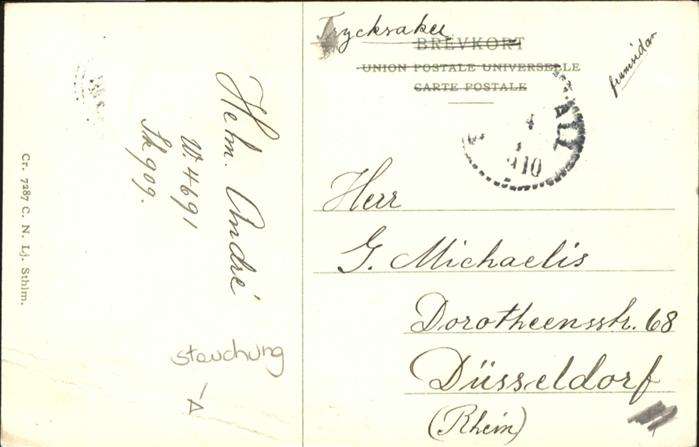 Trycksaker
BREVKORT
UNION POSTALE UNIVERSELLE
CARTE POSTALE
framsidan
4
1
910
Herr
G. Michaelis
Dorotheenstr. 68
Düsseldorf
(Rhein)
Helm. André
W. 4691
Sk 909.
Stauchung
Cr. 7287 C. N. Lj. Sthlm.